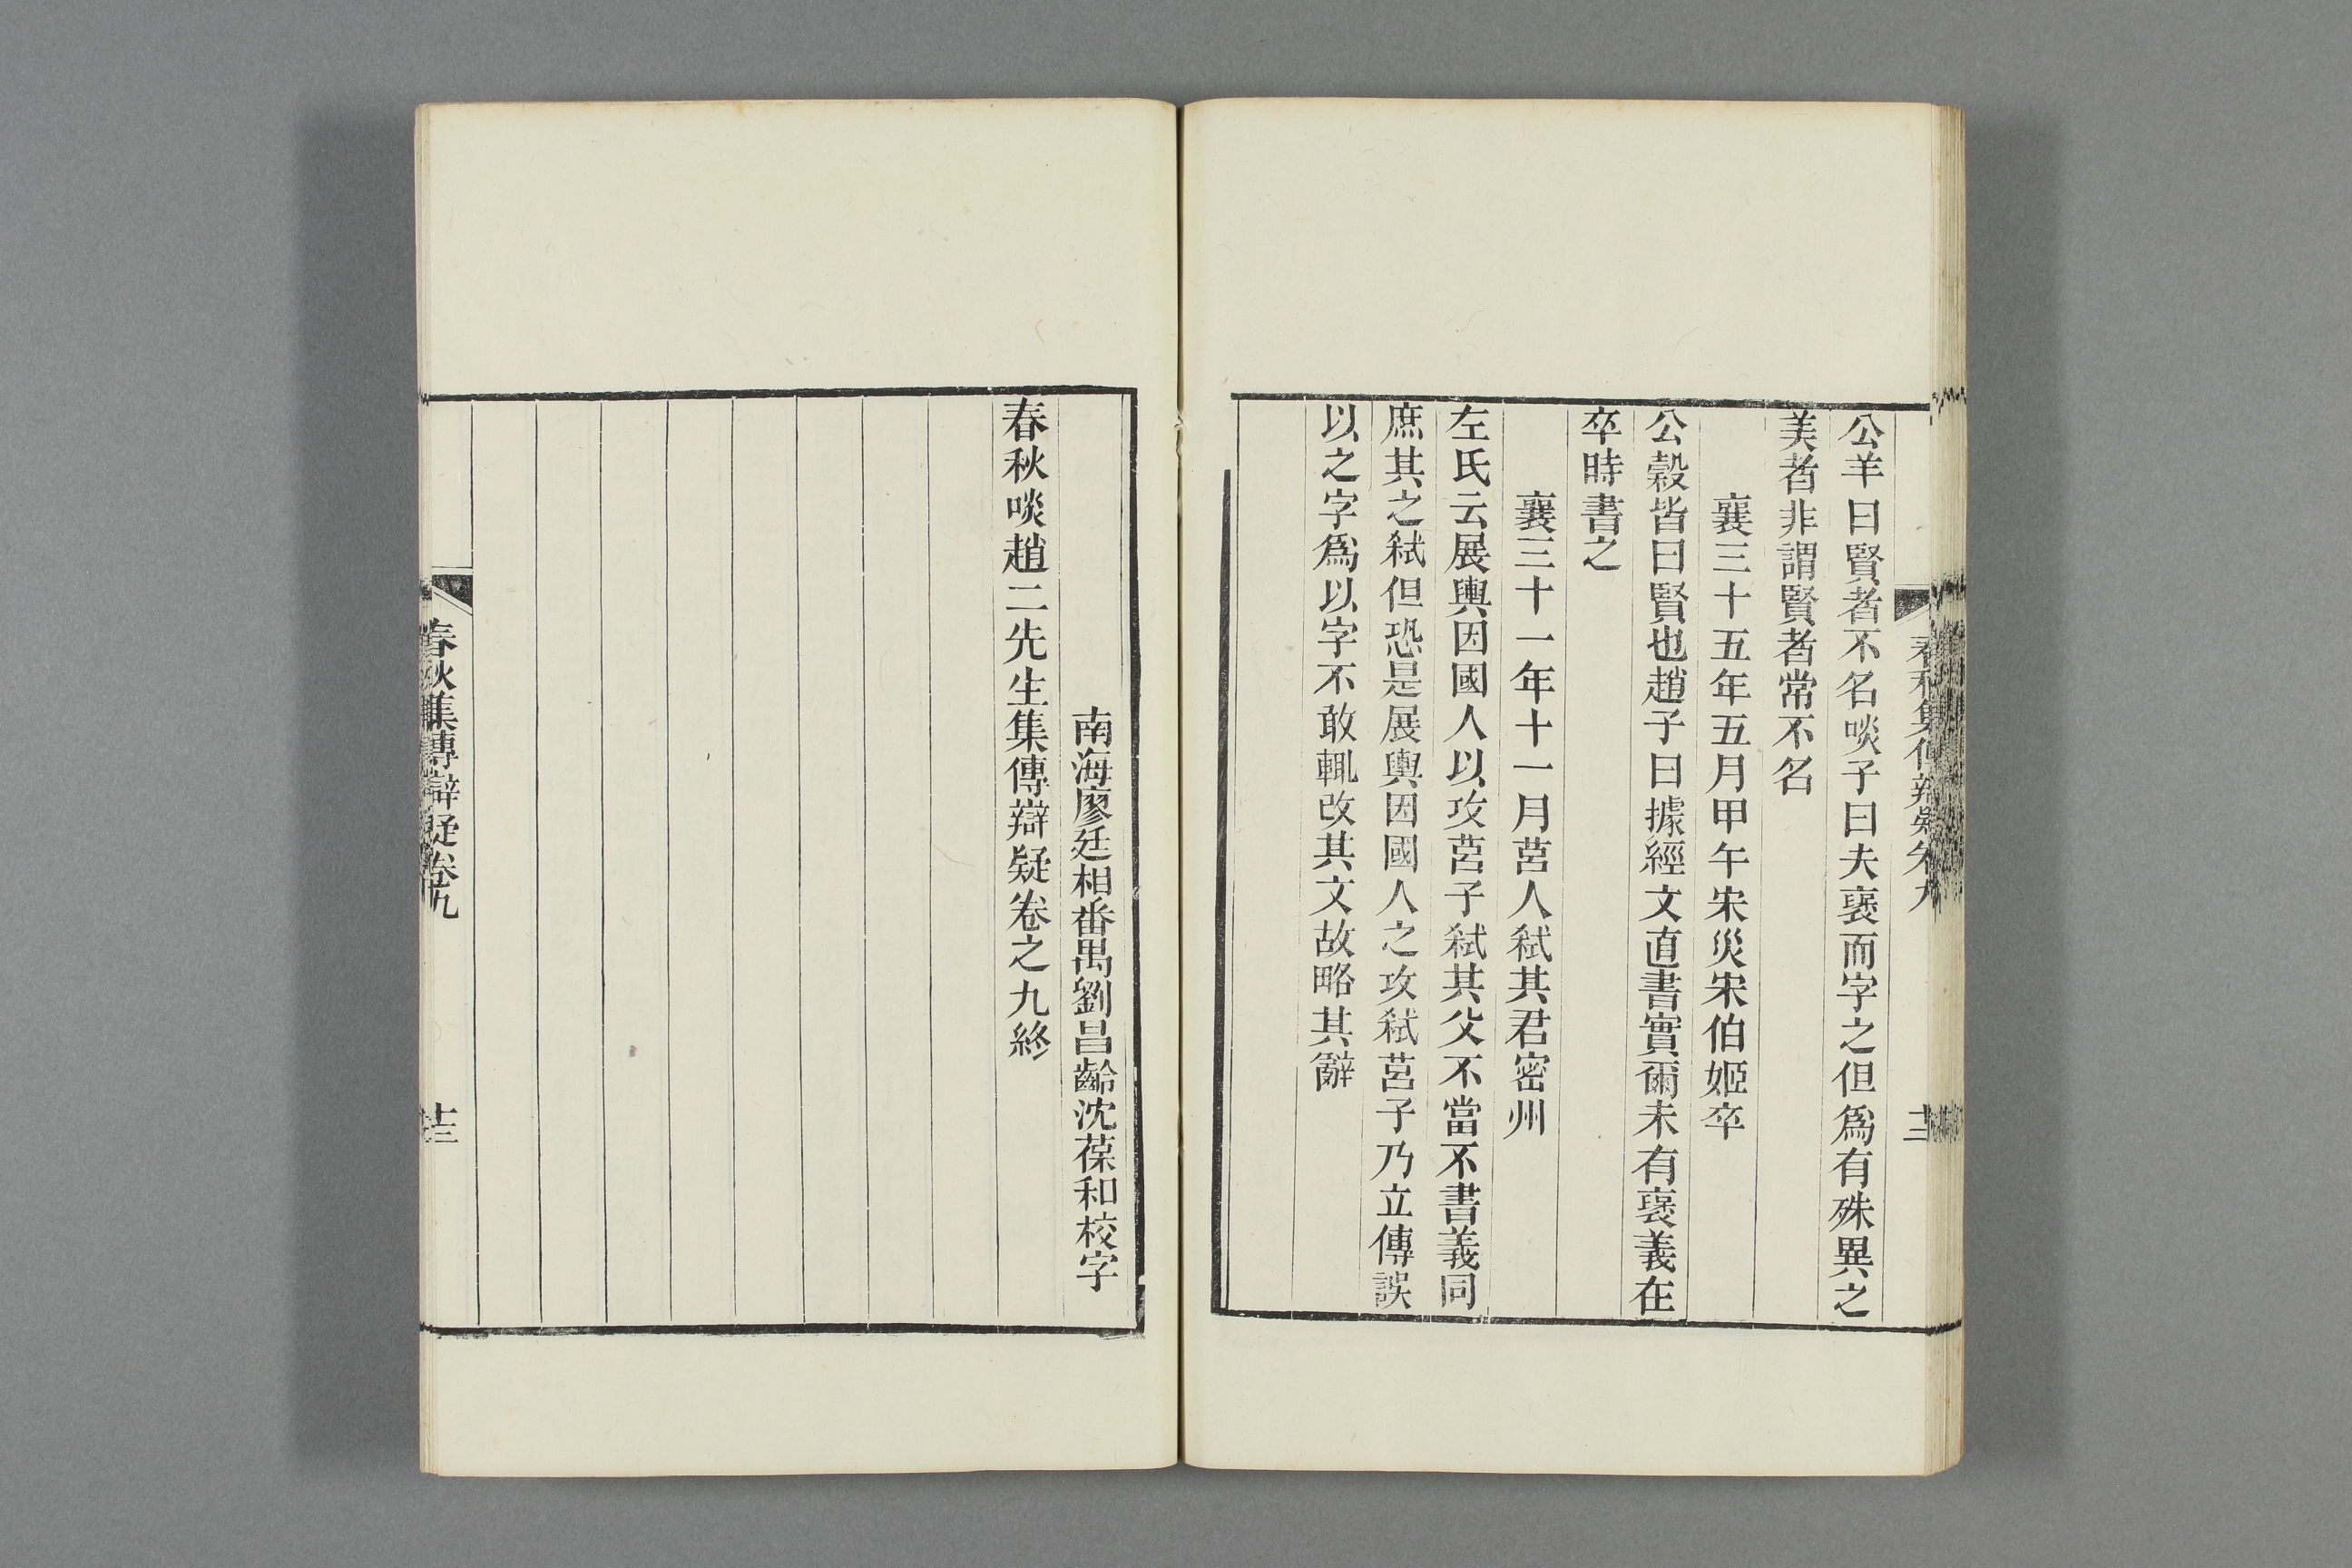 公羊曰賢者不名啖子曰夫襃而字之但爲有殊異之
美者非謂賢者常不名
襄三十五年五月甲午宋災宋伯姬卒
公穀皆曰賢也趙子曰據經文直書實爾未有襃義在
卒時書之
襄三十一年十一月莒人弑其君密州
左氏云展輿因國人以攻莒子弑其父不當不書義同
庶其之弑但恐是展輿因國人之攻弑莒子乃立傳誤
以之字爲以字不敢輒改其文故略其辭
南海廖廷相番禺劉昌齡沈葆和校字
春秋啖趙二先生集傳辯疑卷之九終
春秋集傳辯疑卷九
十三